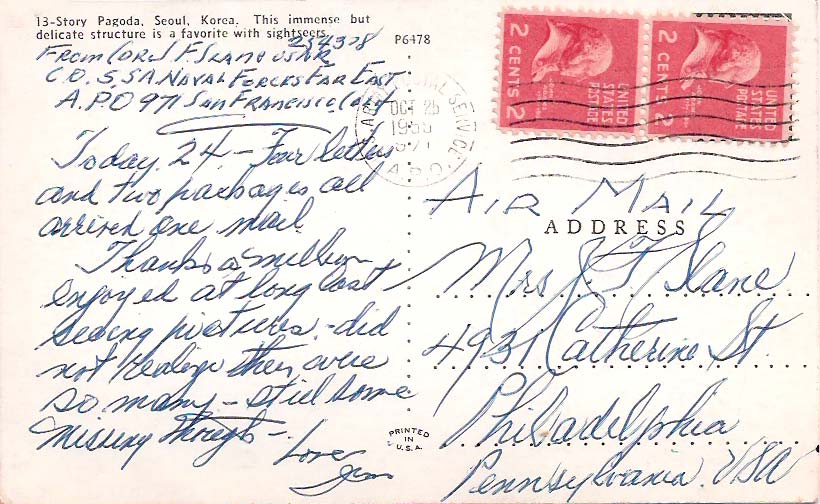 13-Story Pagoda, Seoul, Korea. This immense but
delicate structure is a favorite with sightseers.
P6478
From CDR J F Slane USNR 254378
C.O.S.S.A. Naval Forces Far East
A.P.O 971 San Francisco, Calif
Today. 24 - Four letters
and two packages all
arrived one mail
Thanks a million
enjoyed at long last
seeing pictures - did
not realize they were
so many - still some
missing though -
Love
Jim
OCT 25
A.P.O.
UNITED
STATES
POSTAGE
2 CENTS 2
UNITED
STATES
POSTAGE
2 CENTS 2
Air Mail
ADDRESS
Mrs J F Slane
4931 Catherine St.
Philadelphia
Pennsylvania. USA
PRINTED
IN
U.S.A.